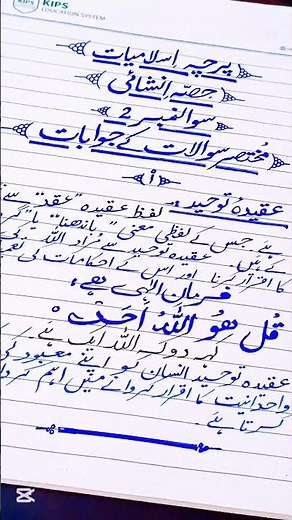 KIPS
KIPS
EDUCATION SYSTEM
پرچہ اسلامیات
حصّہ اِنشائی
سوال نمبر 2
مُختصر سوالات کے جوابات
أ
عقیدۂ توحید:۔ لفظ عقیدہ "عقد" سے
ہے۔ جس کے لفظی معنی "باندھنا" یا
کے ہیں۔ عقیدہ توحید سے مُراد اللہ
کا اقرار کرنا اور اس کے احکامات کی
فرمانِ الٰہی ہے؛
قُل هُوَ اللّٰهُ اَحَدٌ
کہہ دو کہ اللہ ایک ہے۔
عقیدہ توحید انسان کو اپنے معبود کی
واحدانیت کا اقرار کروانے میں اہم کردار
کرتا ہے۔